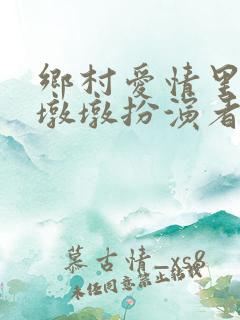 鄉村愛情里
墩墩扮演者
慕古情_xs8
未经同意禁止转载